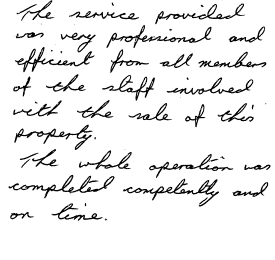 The service provided
was very professional and
efficient from all members
of the staff involved
with the sale of this
property.
The whole operation was
completed competently and
on time.